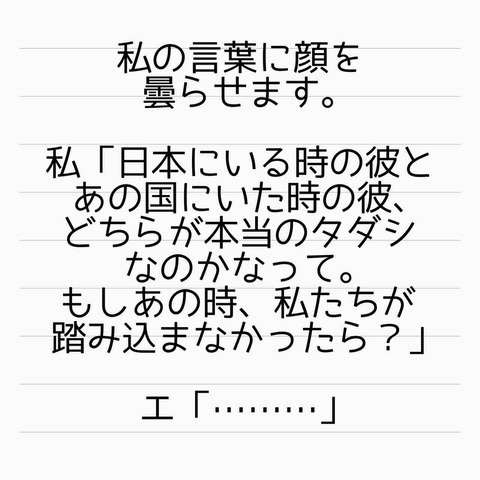 私の言葉に顔を
曇らせます。
私「日本にいる時の彼と
あの国にいた時の彼、
どちらが本当のタダシ
なのかなって。
もしあの時、私たちが
踏み込まなかったら？」
エ「………」